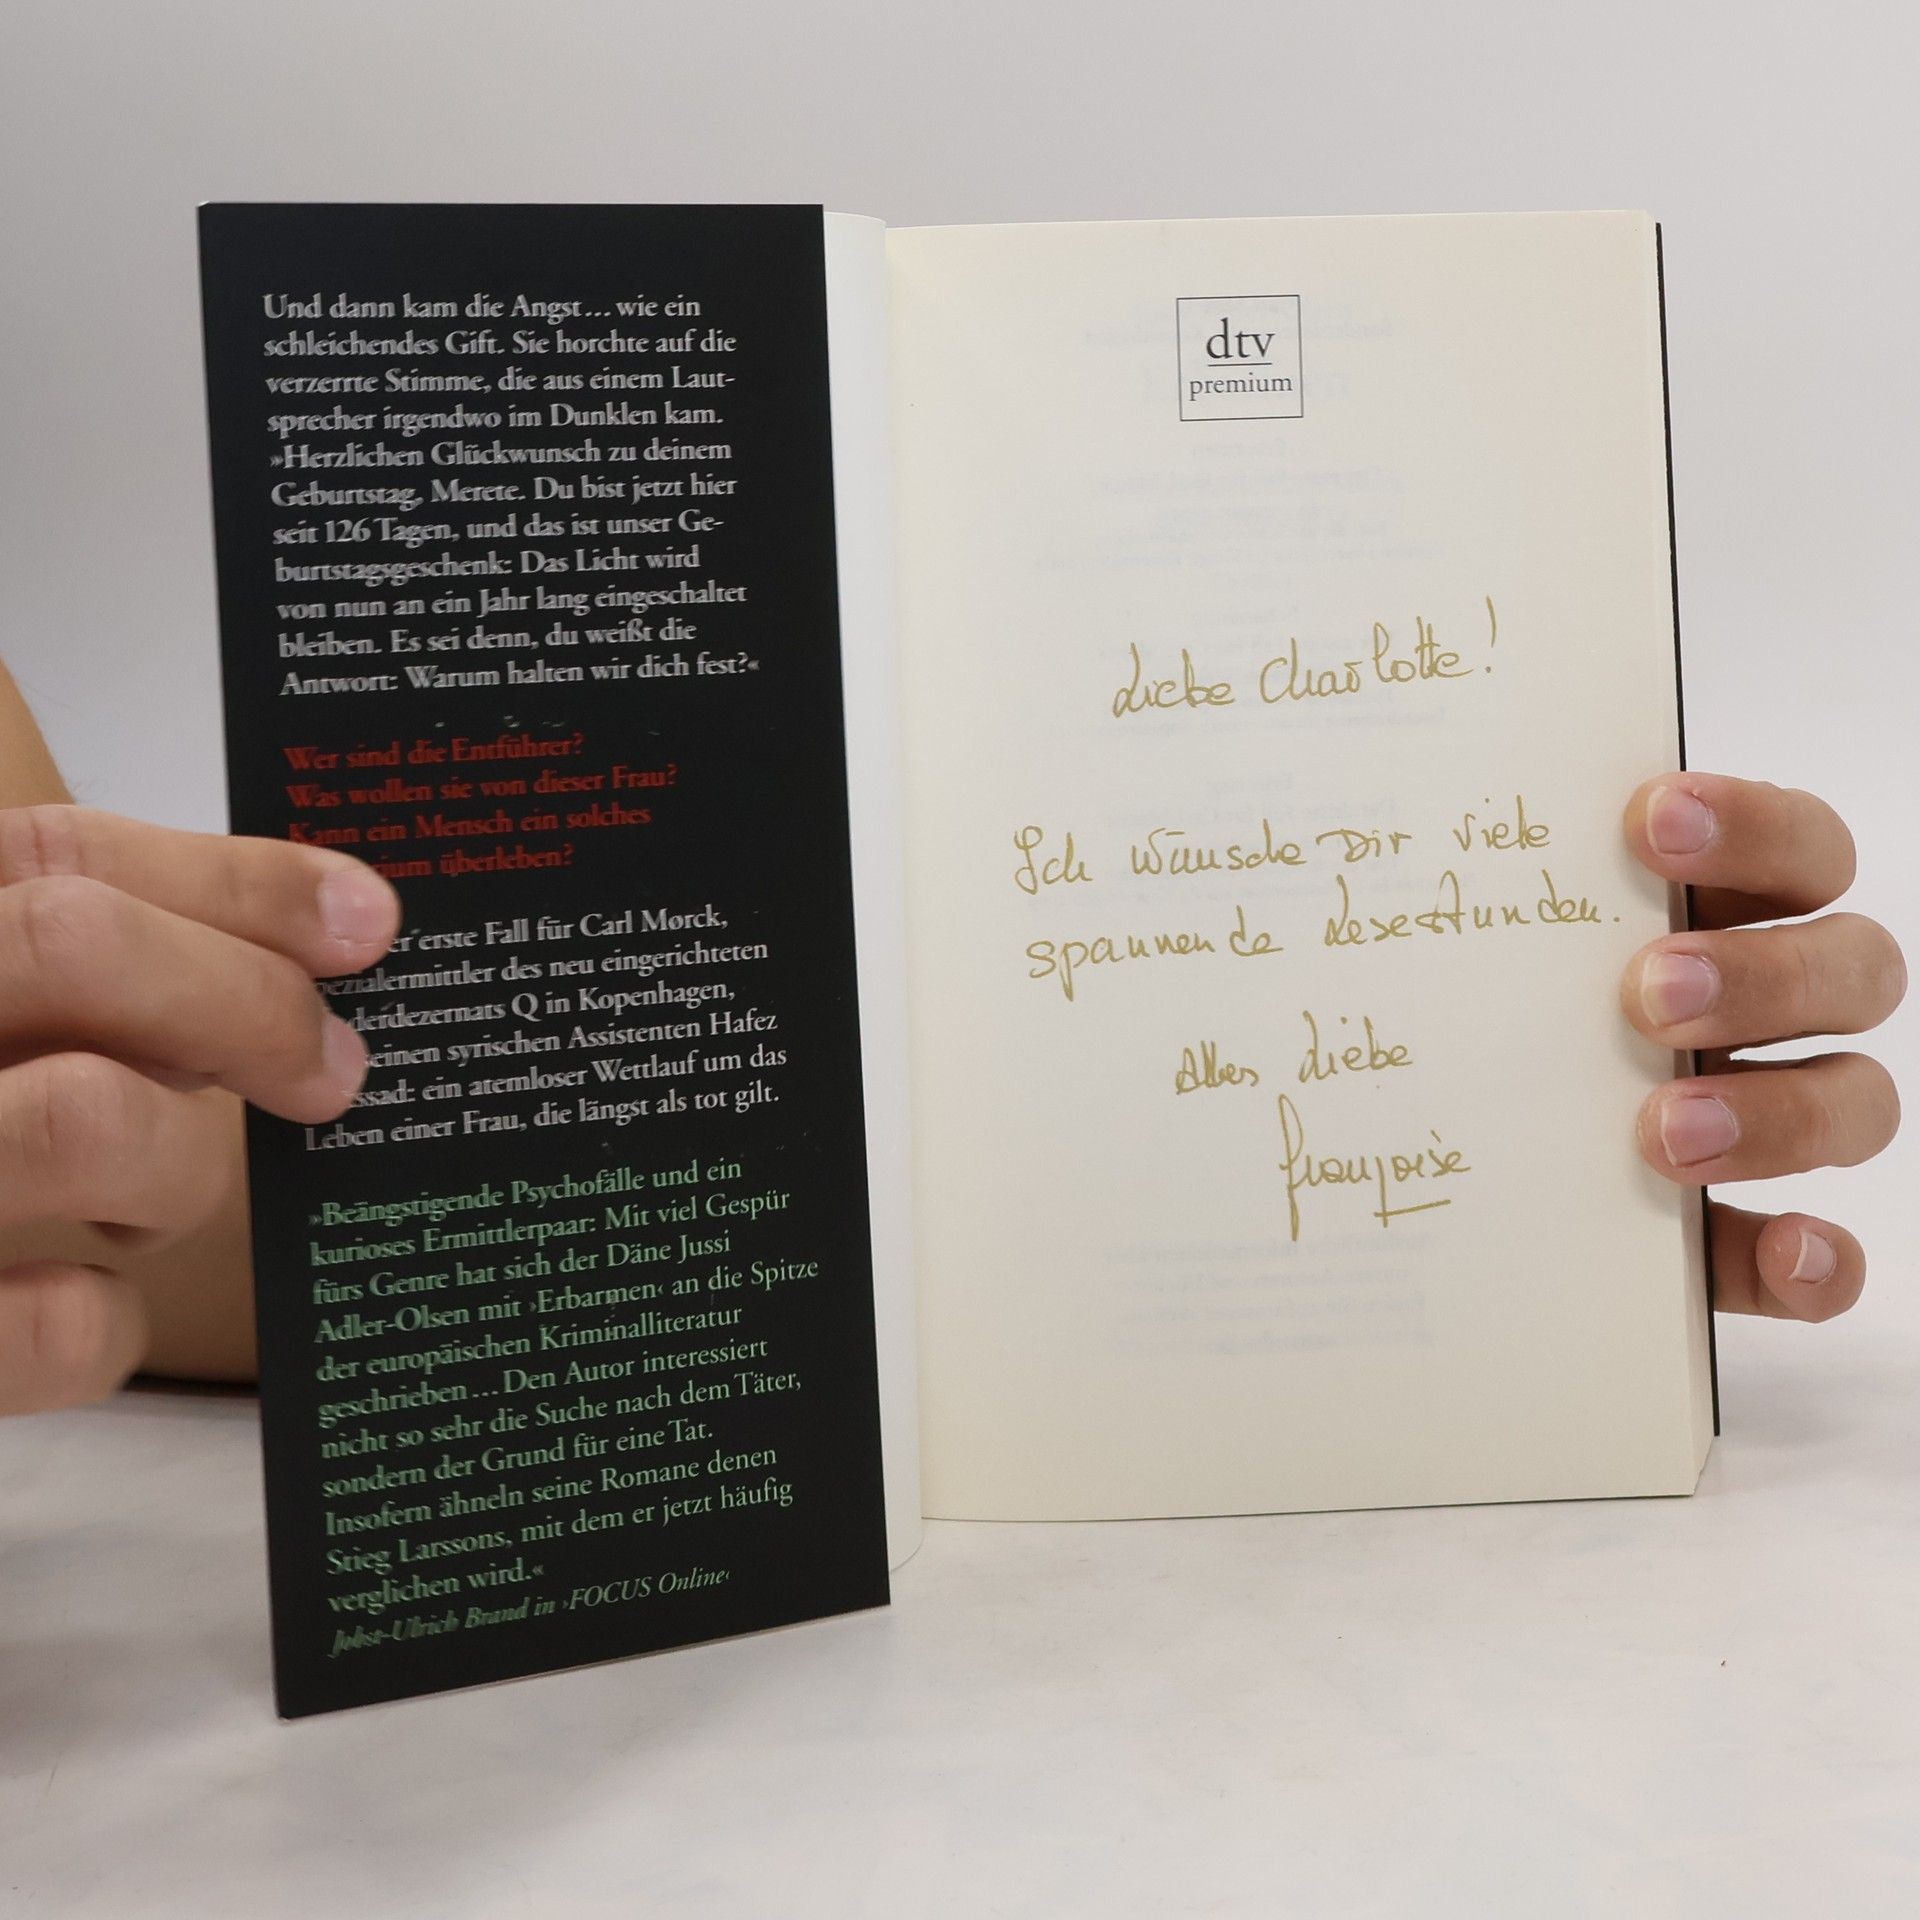 Und dann kam die Angst... wie ein
schleichendes Gift. Sie horchte auf die
verzerrte Stimme, die aus einem Laut-
sprecher irgendwo im Dunklen kam.
»Herzlichen Glückwunsch zu deinem
Geburtstag, Merete. Du bist jetzt hier
seit 126 Tagen, und das ist unser Ge-
burtstagsgeschenk: Das Licht wird
von nun an ein Jahr lang eingeschaltet
bleiben. Es sei denn, du weißt die
Antwort: Warum halten wir dich fest?«
Wer sind die Entführer?
Was wollen sie von dieser Frau?
Kann ein Mensch ein solches
überleben?
erste Fall für Carl Mørck,
des neu eingerichteten
Q in Kopenhagen,
syrischen Assistenten Hafez
ein atemloser Wettlauf um das
Leben einer Frau, die längst als tot gilt.
»Beängstigende Psychofälle und ein
kurioses Ermittlerpaar: Mit viel Gespür
fürs Genre hat sich der Däne Jussi
Adler-Olsen mit ›Erbarmen‹ an die Spitze
der europäischen Kriminalliteratur
geschrieben... Den Autor interessiert
nicht so sehr die Suche nach dem Täter,
sondern der Grund für eine Tat.
Insofern ähneln seine Romane denen
Stieg Larssons, mit dem er jetzt häufig
verglichen wird.«
Jobst-Ulrich Brand in ›FOCUS Online‹
dtv
premium
Liebe Charlotte!
Ich wünsche Dir viele
spannende Lesestunden.
Alles Liebe
Françoise